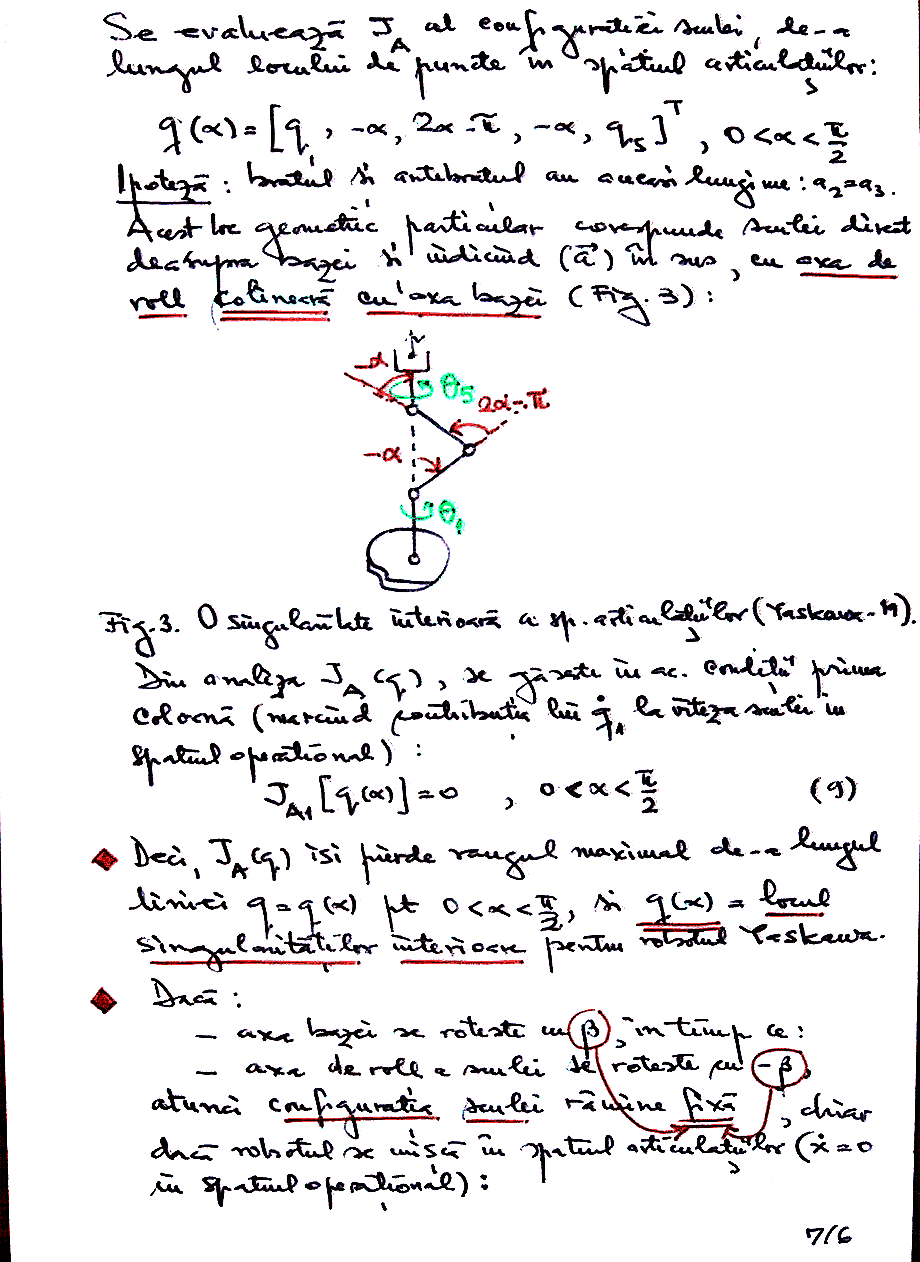 Se evaluează J_A al configurației sculei, de-a
lungul locului de puncte în spațiul articulațiilor:
q(α) = [q₁, -α, 2α-π, -α, q₅]ᵀ, 0<α<π/2
Ipoteză: brațul și antebrațul au aceeași lungime: a₂=a₃.
Acest loc geometric particular corespunde sculei direct
deasupra bazei și indicînd (a⃗) în sus, cu axa de
roll colineară cu axa bazei (Fig. 3):
-α
θ₅
2α-π
-α
θ₁
Fig. 3. O singularitate interioară a sp. articulațiilor (Yaskawa-M).
Din analiza J_A(q), se găsește în ac. condiții prima
coloană (marcînd contribuția lui q̇₁ la viteza sculei în
spațiul operațional):
J_A1 [q(α)] = 0 , 0<α<π/2 (9)
Deci, J_A(q) își pierde rangul maximal de-a lungul
liniei q=q(α) pt 0<α<π/2, și q(α) = locul
singularităților interioare pentru robotul Yaskawa.
Dacă:
- axa bazei se rotește cu β, în timp ce:
- axa de roll a sculei se rotește cu -β,
atunci configurația sculei rămîne fixă, chiar
dacă robotul se mișcă în spațiul articulațiilor (ẋ=0
în spațiul operațional):
7/6